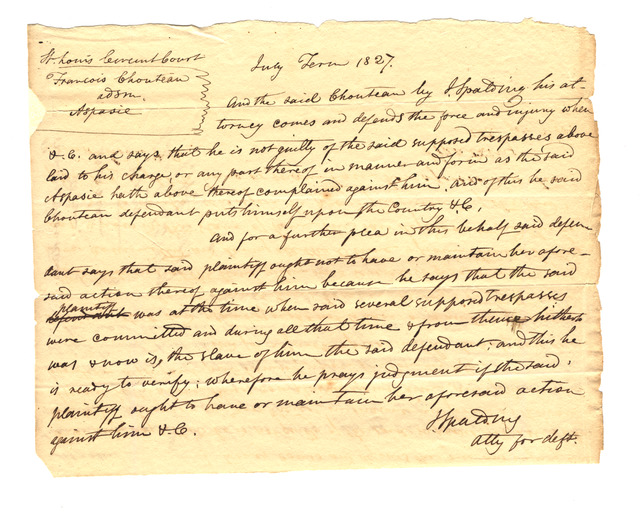 St. Louis Circuit Court
Francois Chouteau
adsm.
Aspasie
July Term 1827.
And the said Chouteau by J Spalding his at-
torney comes and defends the force and injury when
&.C. and says that he is not guilty of the said supposed trespasses above
laid to his charge, or any part thereof in manner and form as the said
Aspasie hath above thereof complained against him. And of this he said
Chouteau defendant puts himself upon the Country &.C.
And for a further plea in this behalf said defen-
dant says that said plaintiff ought not to have or maintain her afore-
said action thereof against him because he says that the said
plaintiff
defendant was at the time when said several supposed trespasses
were committed and during all that time & from thence hitherto
was & now is, the slave of him the said defendant; and this he
is ready to verify: wherefore he prays judgment if the said
plaintiff ought to have or maintain her aforesaid action
against him &.C.
J Spalding
atty for deft.